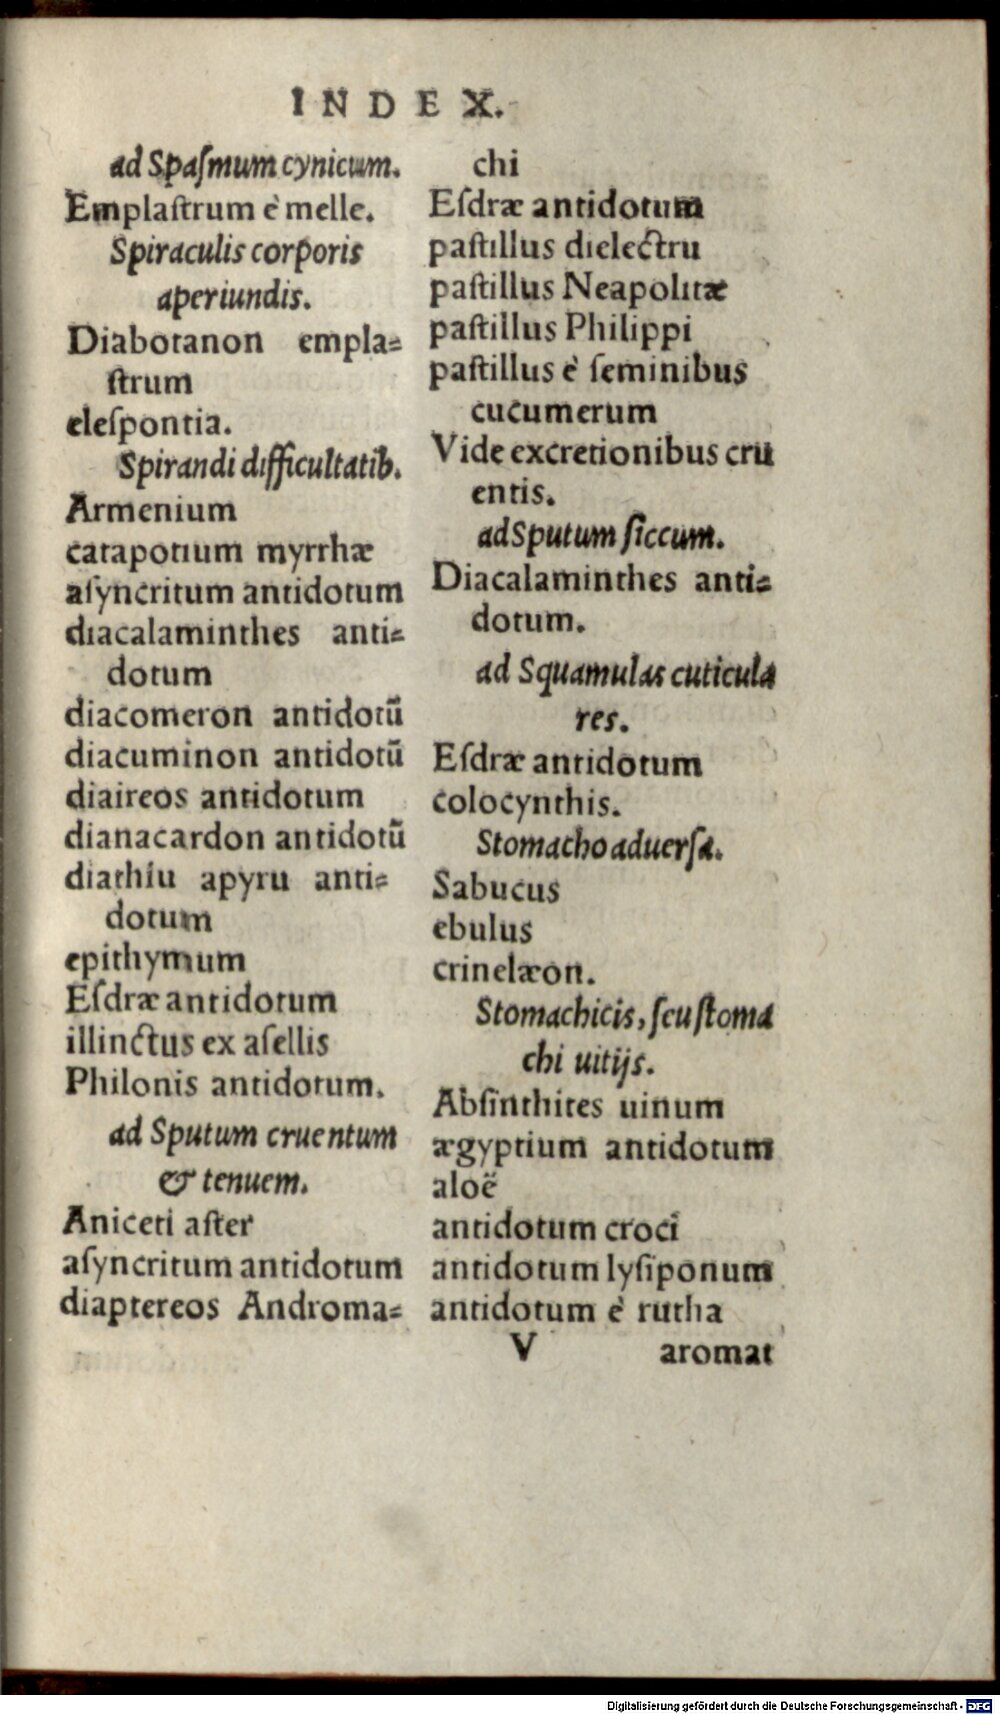 INDEX.
ad Spaſmum cynicum.
Emplaſtrum è melle.
Spiraculis corporis
aperiundis.
Diabotanon empla⸗
ſtrum
eleſpontia.
Spirandi difficultatib.
Armenium
catapotium myrrhæ
aſyncritum antidotum
diacalaminthes anti⸗
dotum
diacomeron antidotũ
diacuminon antidotũ
diaireos antidotum
dianacardon antidotũ
diathiu apyru anti⸗
dotum
epithymum
Eſdræ antidotum
illinctus ex aſellis
Philonis antidotum.
ad Sputum cruentum
& tenuem.
Aniceti aſter
aſyncritum antidotum
diaptereos Androma⸗
chi
Eſdræ antidotum
paſtillus dielectru
paſtillus Neapolitæ
paſtillus Philippi
paſtillus è ſeminibus
cucumerum
Vide excretionibus cru
entis.
ad Sputum ſiccum.
Diacalaminthes anti⸗
dotum.
ad Squamulas cuticula
res.
Eſdræ antidotum
colocynthis.
Stomacho aduerſa.
Sabucus
ebulus
crinelæon.
Stomachicis, ſeu ſtoma
chi uitijs.
Abſinthites uinum
ægyptium antidotum
aloë
antidotum croci
antidotum lyſiponum
antidotum è rutha
V aromat
Digitalisierung gefördert durch die Deutsche Forschungsgemeinschaft - DFG